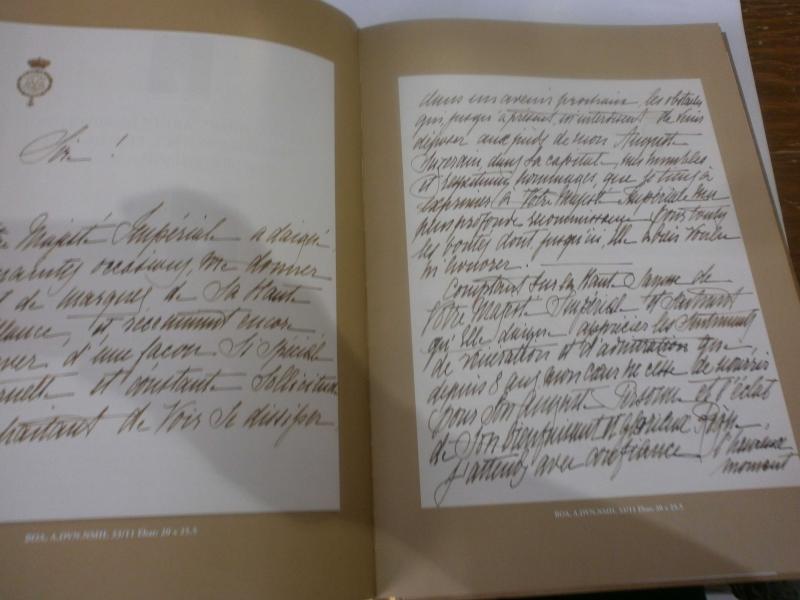 Sire !
Majesté Impériale a daigné
occasions, me donner
de marques de Sa Haute
et récemment encore
d'une façon si spéciale
et constante sollicitude
de voir se dissiper,
BOA, A.DVN.NMH, 33/11 Ebat: 20 x 25.5
dans un avenir prochain, les obstacles
qui, jusqu'à présent, de venir
déposer aux pieds de mon Auguste
Suzerain, dans sa capitale, mes humbles
et respectueux hommages, que je tiens à
exprimer à Votre Majesté Impériale ma
plus profonde reconnaissance pour toutes
les bontés dont jusqu'ici Elle a bien voulu
m'honorer.
Comptant sur la Haute de
Votre Majesté Impériale et
qu'Elle daigne apprécier les sentiments
de vénération et d'admiration que
depuis 8 ans mon cœur ne cesse de nourrir
pour Son Auguste Personne et l'éclat
de Son bienfaisant et glorieux Règne,
j'attends avec confiance l'heureux
moment
BOA, A.DVN.NMH, 33/11 Ebat: 20 x 25.5